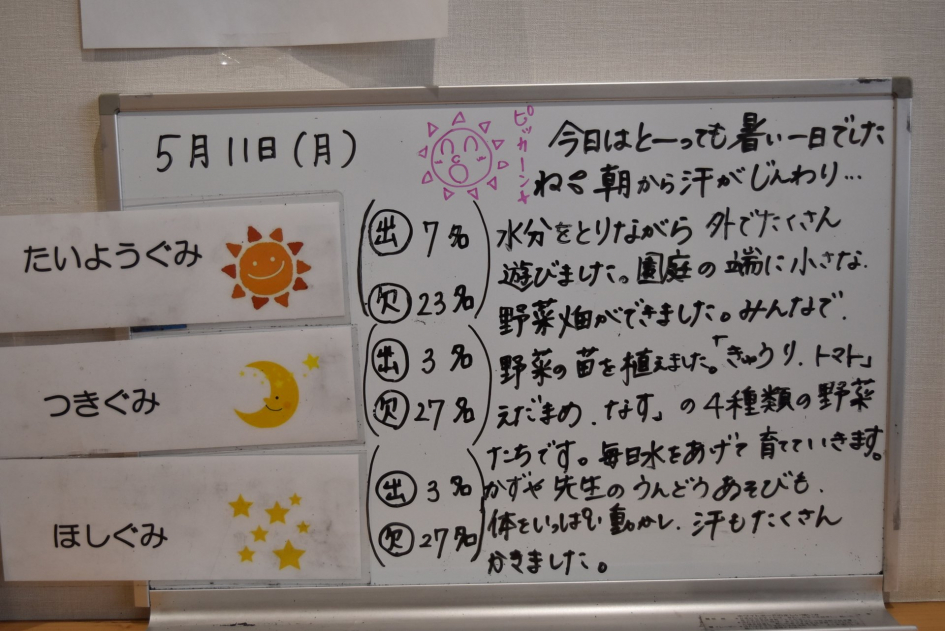 5月11日(月)
ピッカーン
今日はとーっても暑い一日でした
ね 朝から汗がじんわり…
たいようぐみ
出 7名
欠 23名
つきぐみ
出 3名
欠 27名
ほしぐみ
出 3名
欠 27名
水分をとりながら 外でたくさん
遊びました。園庭の端に小さな
野菜畑ができました。みんなで
野菜の苗を植えました。「きゅうり、トマト」
えだまめ、なす」の4種類の野菜
たちです。毎日水をあげて育てていきます。
かずや先生のうんどうあそびも、
体をいっぱい動かし、汗もたくさん
かきました。